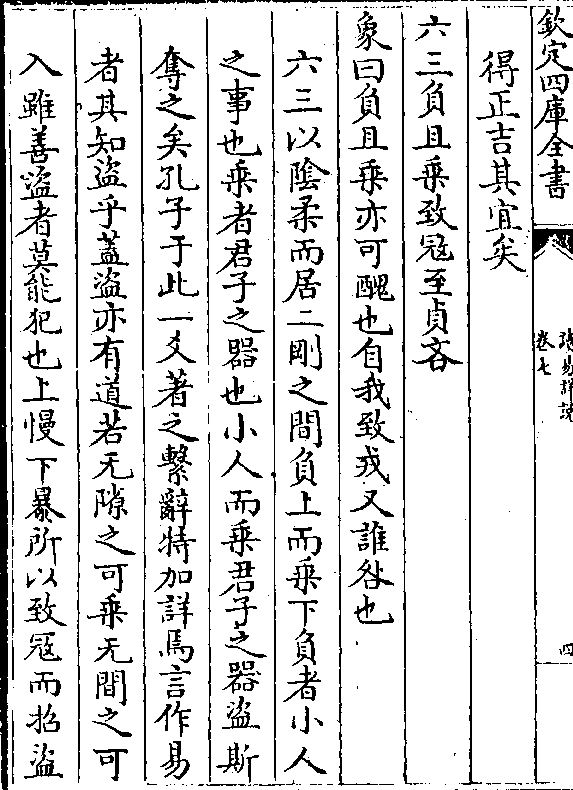 欽定四庫全書
讀易詳說
卷七
四
得正吉其宜矣
六三負且乗致冦至貞吝
象曰負且乗亦可醜也自我致戎又誰咎也
六三以陰柔而居二剛之間負上而乗下負者小人
之事也乗者君子之器也小人而乗君子之器盜斯
奪之矣孔子于此一爻著之繫辭特加詳焉言作易
者其知盜乎蓋盜亦有道若无隙之可乗无間之可
入雖善盜者莫能犯也上慢下暴所以致冦而招盜